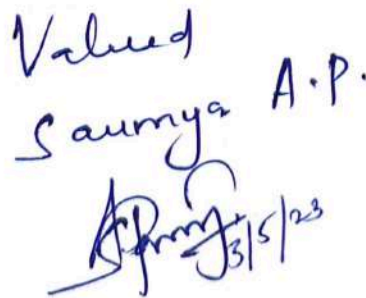 Valued
Saumya A.P.
3/5/23